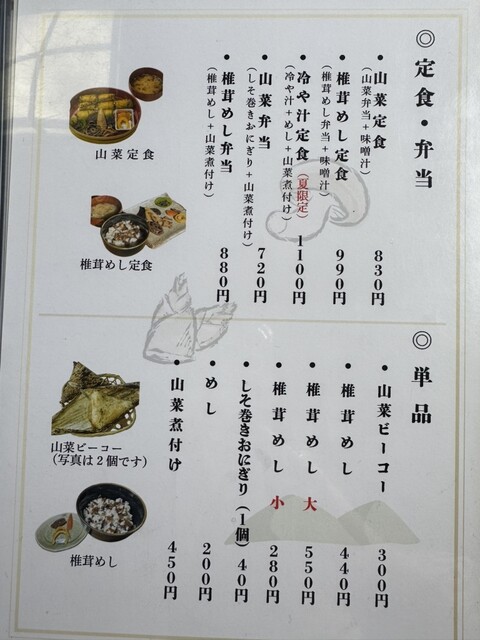 ◎定食・弁当
・山菜定食 830円
（山菜弁当＋味噌汁）
・椎茸めし定食 990円
（椎茸めし弁当＋味噌汁）
・冷や汁定食（夏限定） 1100円
（冷や汁＋めし＋山菜煮付け）
・山菜弁当 720円
（しそ巻きおにぎり＋山菜煮付け）
・椎茸めし弁当 880円
（椎茸めし＋山菜煮付け）
山菜定食
椎茸めし定食
◎単品
・山菜ピーコー 300円
・椎茸めし 440円
・椎茸めし 大 550円
・椎茸めし 小 280円
・しそ巻きおにぎり（1個） 40円
・めし 200円
・山菜煮付け 450円
山菜ピーコー
（写真は2個です）
椎茸めし